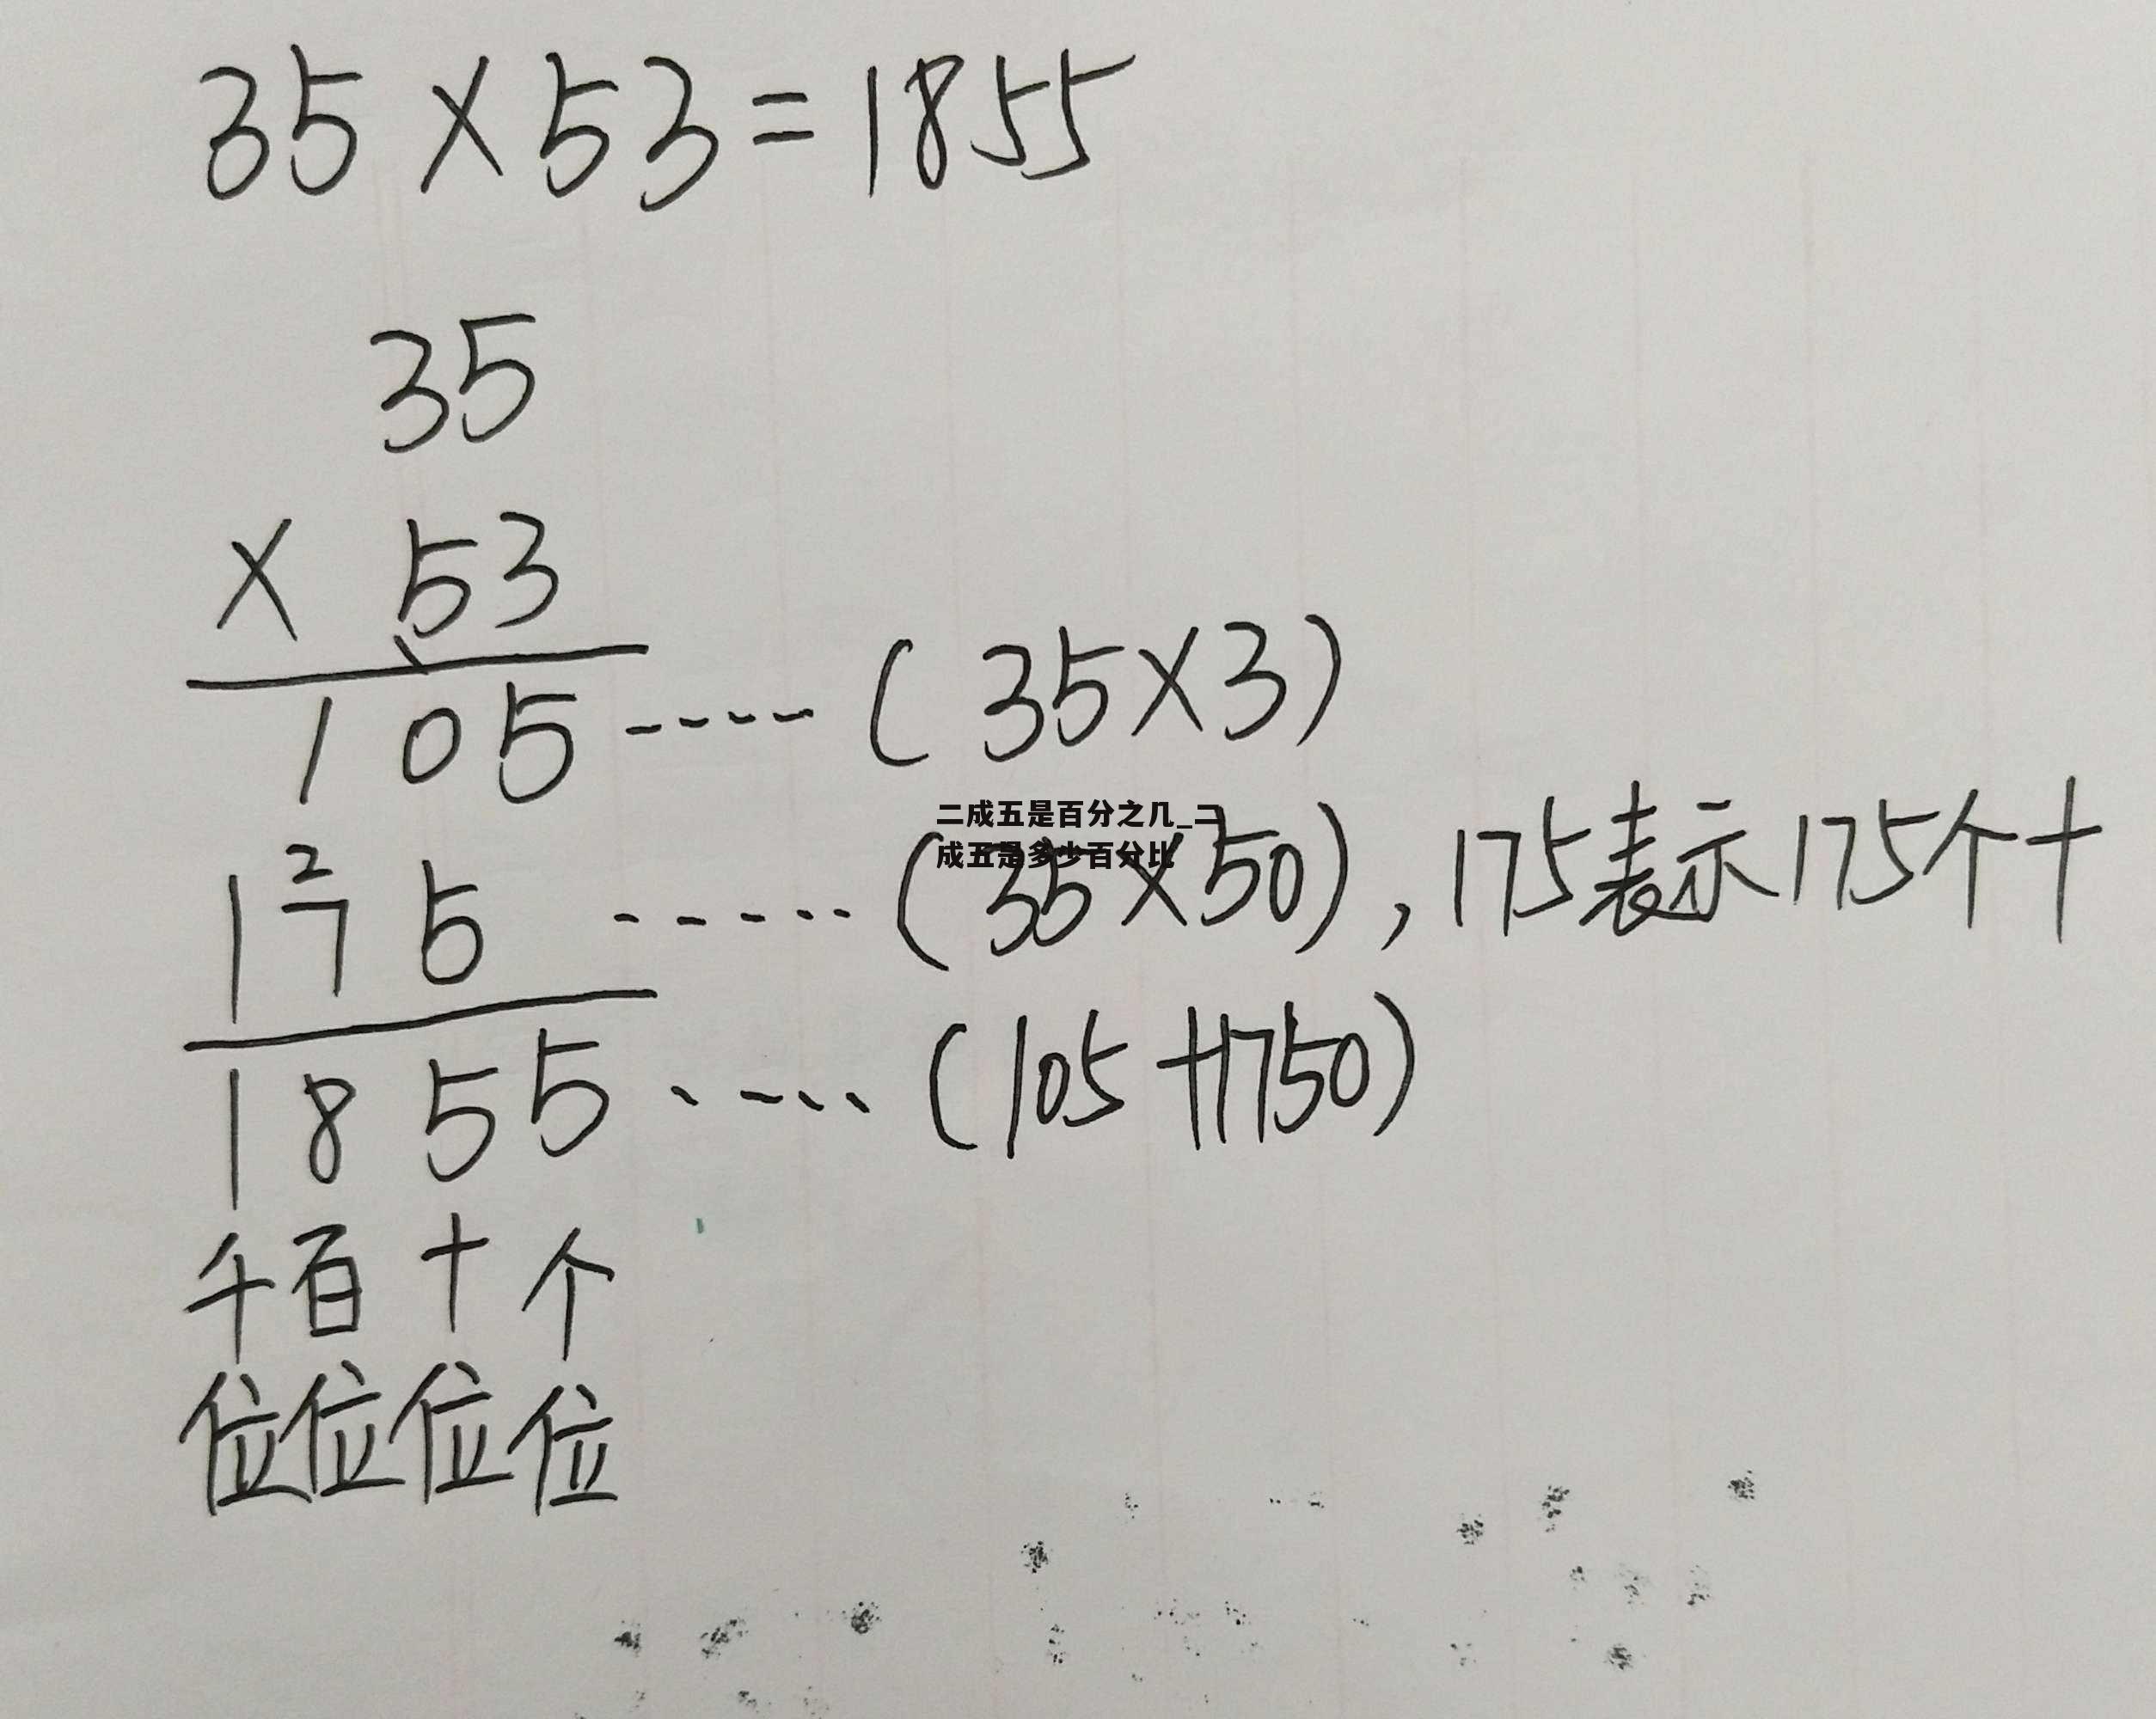 35×53=1855
35
× 53
105 ----- (35×3)
二成五是百分之几_二
成五是多少百分比
2
175 ------ (35×50), 175表示175个十
1855 ..... (105+1750)
千百十个
位位位位